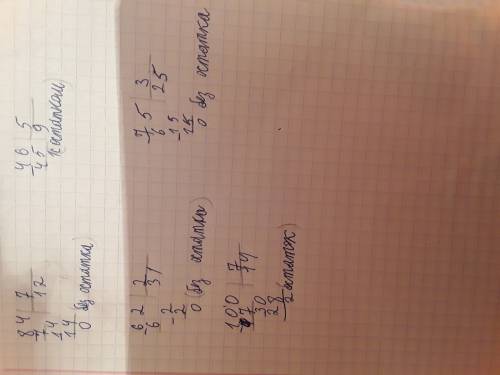 84 | 7
7 | 12
14
14
0 (без остатка)
46 | 5
45 | 9
1 (остаток)
62 | 2
6 | 31
2
2
0 (без остатка)
75 | 3
6 | 25
15
15
0 без остатка
100 | 7
7 | 14
30
28
2 (остаток)